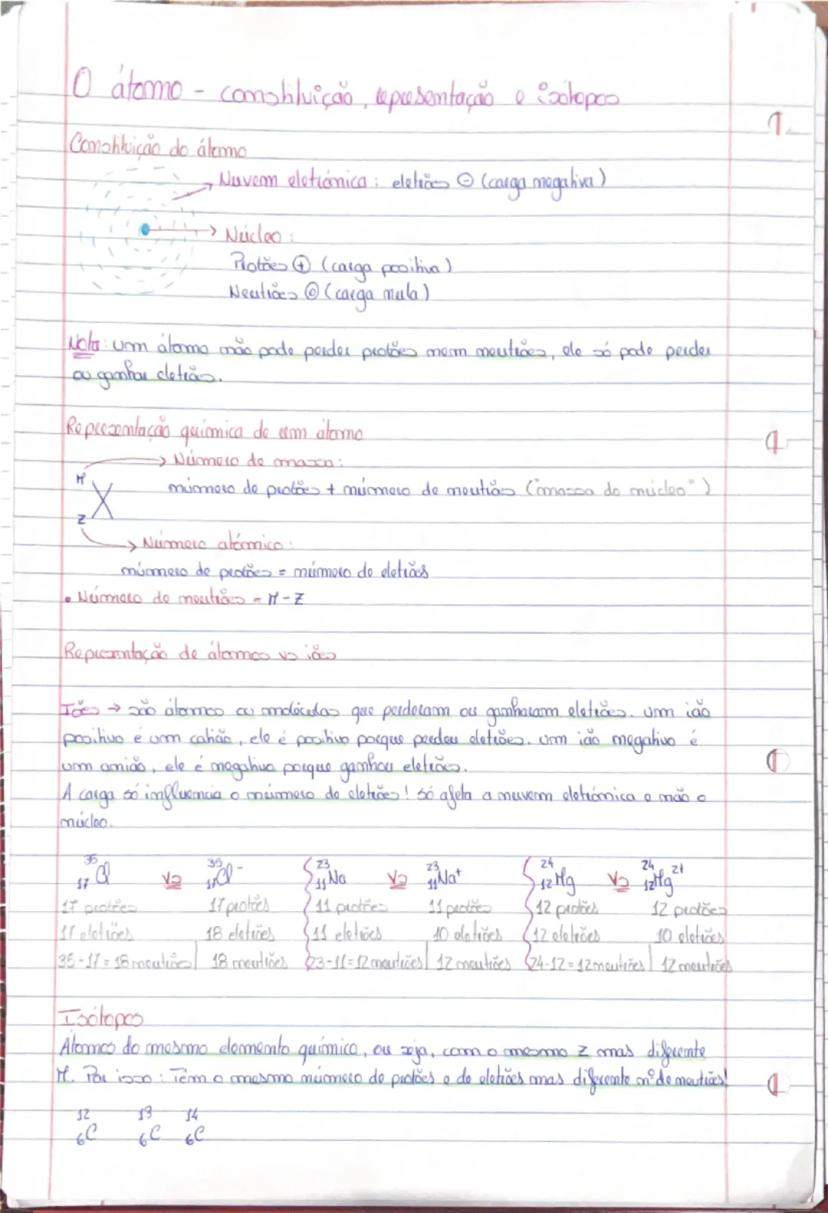 O átomo - constituição, representação e isótopos
Constituição do átomo
Nuvem eletrónica: eletrões ⊖ (carga negativa)
Núcleo:
Protões ⊕ (carga positiva)
Neutrões ⓪ (carga nula)
Nota: um átomo não pode perder protões nem neutrões, ele só pode perder
ou ganhar eletrões.
Representação química de um átomo
Número de massa:
M
número de protões + número de neutrões ("massa do núcleo")
X
Z
Número atómico:
número de protões = número de eletrões
• Número de neutrões = M - Z
Representação de átomos vs iões
Iões → são átomos ou moléculas que perderam ou ganharam eletrões. um ião
positivo é um catião, ele é positivo porque perdeu eletrões. um ião negativo é
um anião, ele é negativo porque ganhou eletrões.
A carga só influencia o número de eletrões! só afeta a nuvem eletrónica e não o
núcleo.
³⁵₁₇Cl vs ³⁵₁₇Cl⁻ ²³₁₁Na vs ²³₁₁Na⁺ ²⁴₁₂Mg vs ²⁴₁₂Mg²⁺
17 protões 17 protões 11 protões 11 protões 12 protões 12 protões
17 eletrões 18 eletrões 11 eletrões 10 eletrões 12 eletrões 10 eletrões
35-17=18 neutrões 18 neutrões 23-11=12 neutrões 12 neutrões 24-12=12 neutrões 12 neutrões
Isótopos
Átomos do mesmo elemento químico, ou seja, com o mesmo Z mas diferente
M. Por isso: Têm o mesmo número de protões e de eletrões mas diferente nº de neutrões!
¹²₆C ¹³₆C ¹⁴₆C